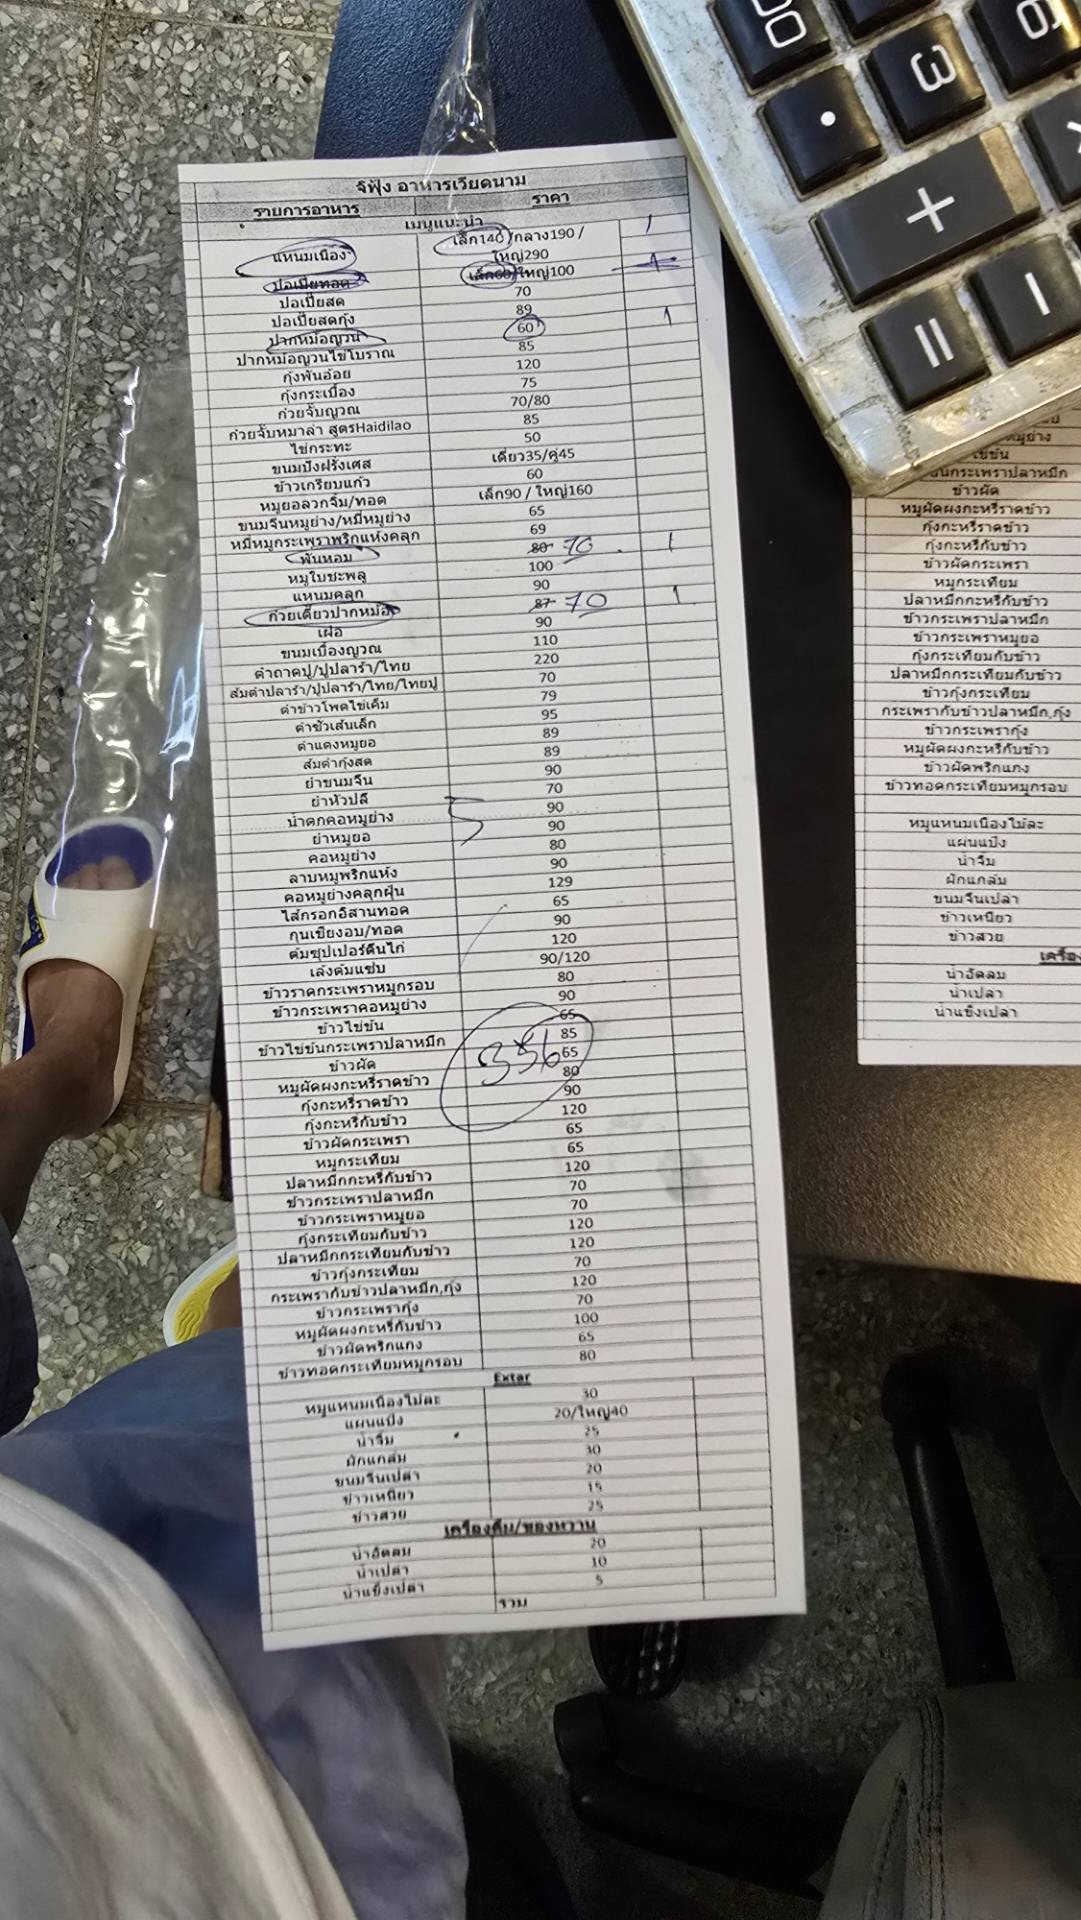 จิฟุ้ง อาหารเวียดนาม
รายการอาหาร ราคา
เมนูแนะนำ
แหนมเนือง เล็ก140/กลาง190/ใหญ่290 1
ปอเปี๊ยทอด เล็ก60/ใหญ่100 1
ปอเปี๊ยสด 70
ปอเปี๊ยสดกุ้ง 89
ปากหม้อญวน 60 1
ปากหม้อญวนไข่โบราณ 85
กุ้งพันอ้อย 120
กุ้งกระเบื้อง 75
ก๋วยจั๊บญวณ 70/80
ก๋วยจั๊บหมาล่า สูตรHaidilao 85
ไข่กระทะ 50
ขนมปังฝรั่งเศส เดี่ยว35/คู่45
ข้าวเกรียบแก้ว 60
หมูยอลวกจิ้ม/ทอด เล็ก90 / ใหญ่160
ขนมจีนหมูย่าง/หมี่หมูย่าง 65
หมี่หมูกระเพราพริกแห้งคลุก 69
พันหอม 80 70 1
หมูใบชะพลู 100
แหนมคลุก 90
ก๋วยเตี๋ยวปากหม้อ 87 70 1
เฝอ 90
ขนมเบื้องญวณ 110
ตำถาดปู/ปูปลาร้า/ไทย 220
ส้มตำปลาร้า/ปูปลาร้า/ไทย/ไทยปู 70
ตำข้าวโพดไข่เค็ม 79
ตำซั่วเส้นเล็ก 95
ตำแตงหมูยอ 89
ส้มตำกุ้งสด 89
ยำขนมจีน 90
ยำหัวปลี 70
น้ำตกคอหมูย่าง 90
ยำหมูยอ 90
คอหมูย่าง 80
ลาบหมูพริกแห้ง 90
คอหมูย่างคลุกฝุ่น 129
ไส้กรอกอิสานทอด 65
กุนเชียงอบ/ทอด 90
ต้มซุปเปอร์ตีนไก่ 120
เล้งต้มแซ่บ 90/120
ข้าวราดกระเพราหมูกรอบ 80
ข้าวกระเพราคอหมูย่าง 90
ข้าวไข่ข้น 65
ข้าวไข่ข้นกระเพราปลาหมึก 85
ข้าวผัด 65
หมูผัดผงกะหรี่ราดข้าว 80
กุ้งกะหรี่ราดข้าว 90
กุ้งกะหรี่กับข้าว 120
ข้าวผัดกระเพรา 65
หมูกระเทียม 65
ปลาหมึกกะหรี่กับข้าว 120
ข้าวกระเพราปลาหมึก 70
ข้าวกระเพราหมูยอ 70
กุ้งกระเทียมกับข้าว 120
ปลาหมึกกระเทียมกับข้าว 120
ข้าวกุ้งกระเทียม 70
กระเพรากับข้าวปลาหมึก,กุ้ง 120
ข้าวกระเพรากุ้ง 70
หมูผัดผงกะหรี่กับข้าว 100
ข้าวผัดพริกแกง 65
ข้าวทอดกระเทียมหมูกรอบ 80
Extar
หมูแหนมเนืองไม้ละ 30
แผ่นแป้ง 20/ใหญ่40
น้ำจิ้ม 25
ผักแกล้ม 30
ขนมจีนเปล่า 20
ข้าวเหนียว 15
ข้าวสวย 25
เครื่องดื่ม/ของหวาน
น้ำอัดลม 20
น้ำเปล่า 10
น้ำแข็งเปล่า 5
รวม
5
336
ข้าวผัด
หมูผัดผงกะหรี่ราดข้าว
กุ้งกะหรี่ราดข้าว
กุ้งกะหรี่กับข้าว
ข้าวผัดกระเพรา
หมูกระเทียม
ปลาหมึกกะหรี่กับข้าว
ข้าวกระเพราปลาหมึก
ข้าวกระเพราหมูยอ
กุ้งกระเทียมกับข้าว
ปลาหมึกกระเทียมกับข้าว
ข้าวกุ้งกระเทียม
กระเพรากับข้าวปลาหมึก,กุ้ง
ข้าวกระเพรากุ้ง
หมูผัดผงกะหรี่กับข้าว
ข้าวผัดพริกแกง
ข้าวทอดกระเทียมหมูกรอบ
หมูแหนมเนืองไม้ละ
แผ่นแป้ง
น้ำจิ้ม
ผักแกล้ม
ขนมจีนเปล่า
ข้าวเหนียว
ข้าวสวย
น้ำอัดลม
น้ำเปล่า
น้ำแข็งเปล่า
00 . 3 6 + - =